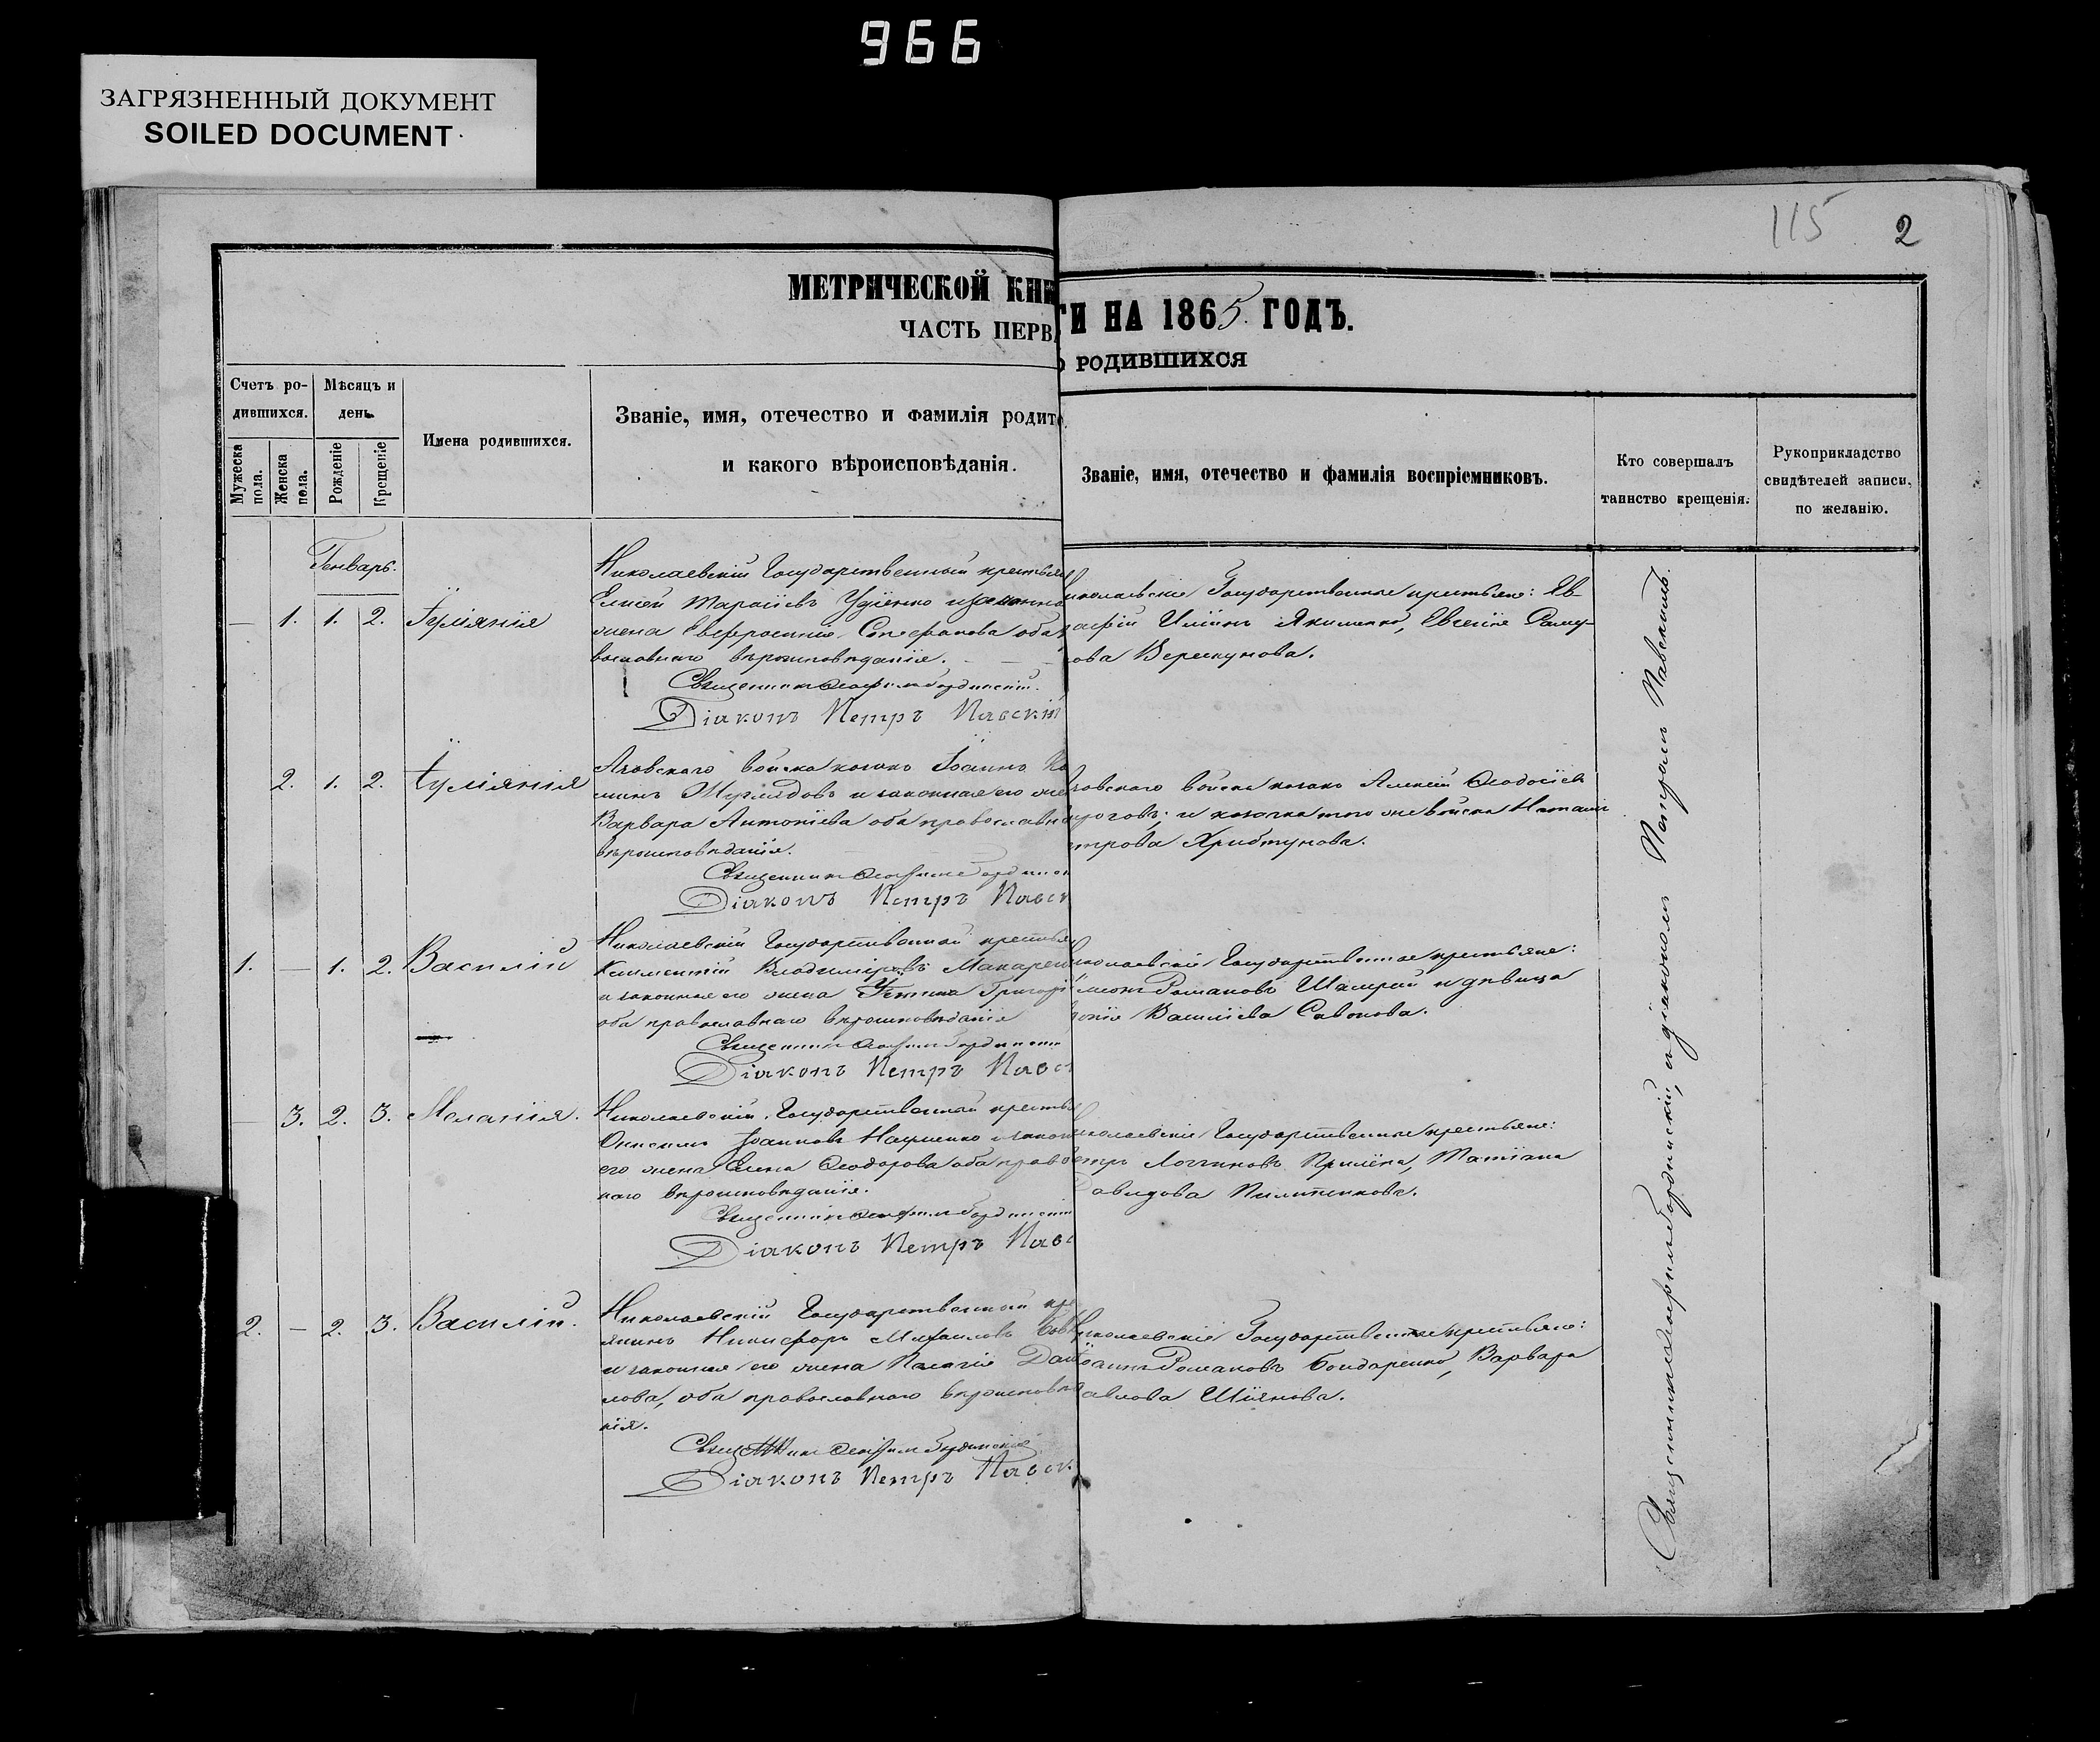 966
ЗАГРЯЗНЕННЫЙ ДОКУМЕНТ
SOILED DOCUMENT
115 2
МЕТРИЧЕСКОЙ КНИ
ГИ НА 1865 ГОДЪ.
ЧАСТЬ ПЕРВ
О РОДИВШИХСЯ
Счетъ ро-
дившихся.
Мужеска пола.
Женска пола.
Мѣсяцъ и
день
Рожденіе
Крещеніе
Имена родившихся.
Званіе, имя, отечество и фамилія родите
и какого вѣроисповѣданія.
Званіе, имя, отечество и фамилія воспріемниковъ.
Кто совершалъ
таинство крещенія.
Рукоприкладство
свидѣтелей записи,
по желанію.
Генварь.
— 1. 1. 2. Іуліянія
Николаевскій Государственный крестьян
Елисей Тарасіевъ и законна
жена Евфросинія Стефанова оба
вославнаго вѣроисповѣданія.
Священникъ
Діаконъ Петръ Павскій
иколаевскіе Государственные крестьяне: Ев-
Илiинъ Якименко, Евгенія Саму-
ова
2. 1. 2. Іуліянія
Азовскаго войска козакъ Іоаннъ
и законная его же
Варвара Антоніева оба православна
вѣроисповѣданія.
Священникъ
Діаконъ Петръ Павск
зовскаго войска козакъ Алексій Ѳеодосіев
и козачка того же войска Наталія
етрова
1. — 1. 2. Василій
Николаевскій Государственной крестья
Климентій Владиміровъ Макарен
и законная его жена Устина Григорі
оба православнаго вѣроисповѣданія
Священникъ
Діаконъ Петръ Павс
иколаевскіе Государственные крестьяне:
Романовъ Шамрай и дѣвица
Василіева Савонова.
— 3. 2. 3. Меланія.
Николаевскій Государственной кресть
Онисимъ Іоанновъ Науменко и закон
его жена Елена Ѳеодорова оба право
наго вѣроисповѣданія.
Священникъ
Діаконъ Петръ Павс
иколаевскіе Государственные крестьяне:
етръ Логгиновъ Татіана
авидова
2. — 2. 3. Василій.
Николаевскій Государственной кре
янинъ Никифоръ Михаиловъ
и законная его жена Пелагія Дані
лова, оба православнаго вѣроисповѣд
нія.
Священникъ
Діаконъ Петръ Павск
иколаевскіе Государственные крестьяне:
Іоаннъ Романовъ Бондаренко, Варвара
авлова Шіянова.
Священникъ и діакономъ Петромъ Павскимъ.